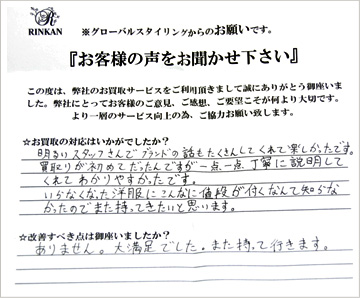 R
RINKAN
※グローバルスタイリングからのお願いです。
『お客様の声をお聞かせ下さい』
この度は、弊社のお買取サービスをご利用頂きまして誠にありがとう御座いました。
弊社にとってお客様のご意見、ご感想、ご要望こそが何より大切です。
より一層のサービス向上の為、ご協力お願い致します。
☆お買取の対応はいかがでしたか?
明るいスタッフさんでブランドの話もたくさんしてくれて楽しかったです。
買取りが初めてだったんですが一点一点丁寧に説明して
くれてわかりやすかったです。
いらなくなった洋服にこんなに値段が付くなんて知らな
かったのでまた持ってきたいと思います。
☆改善すべき点は御座いましたか?
ありません。大満足でした。また持って行きます。